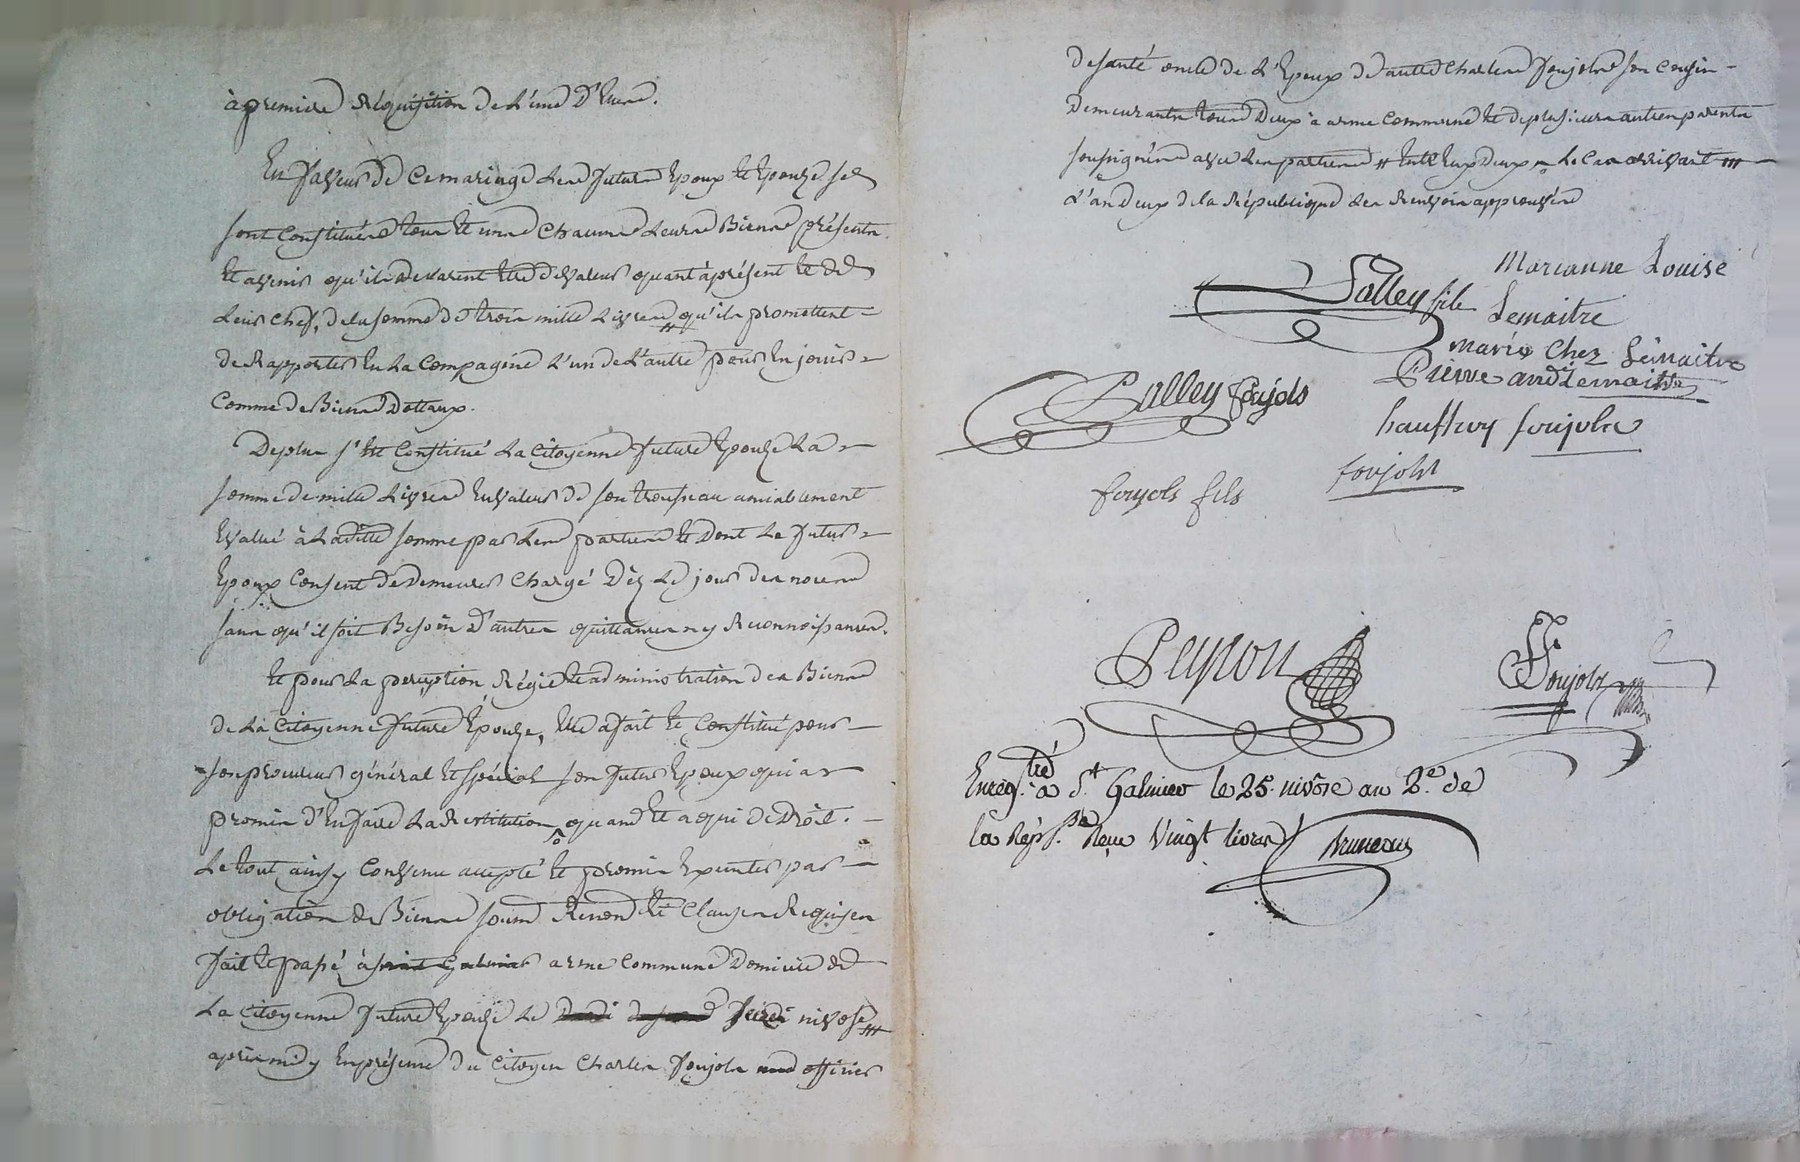 à premiere Réquisition de L'une d'Eux.
En faveur de Ce mariage Les futurs Epoux et Epouze se
sont Constitués tous et uns Chacuns Leurs Biens présents
et avenir qu'ils declarent être de valeur quant à présent et de
Leur Chef, de la somme de trois mille Livres qu'ils promettent
de Rapporter En La Compagnie L'un de L'autre pour En jouir
Comme de Biens Dottaux.
De plus s'est Constitué La Citoyenne future Epouze La
somme de mille Livres En valeur de son trousseau amiablement
Evalué à Laditte somme par Les parties et Dont Le futur
Epoux Consent de Demeurer Chargé Dèz Le jour des noces
sans qu'il soit Besoin D'autres quittances ny Reconnoissances.
Et pour La perception Régie et administration des Biens
de La Citoyenne future Epouze, Elle a fait et Constitué pour
son procureur général et spécial son futur Epoux qui a
promis d'En faire La Restitution quand et a qui de Droit.
Le tout ainsy Convenu accepté et promis Exécuter par
obligation de Biens soums Renon et Clauses Requises
fait et passé à arme Commune Domicile de
La Citoyenne future Epouze Le nivose
après midy En présence du Citoyen Charles foujols officier
de santé oncle de L'Epoux d'autre Charles foujols son Cousin
Demeurants tous Deux à arme Commune et de plusieurs autres parents
soussignés avec Les parties // Entr'Eux Deux Le Cas arrivant ///
L'an deux de la République Les Renvois approuvés
Marianne Louise
Lemaitre
Palley fils
marie Chez Lemaitre
Pierre andré Lemaitre
Palley foujols
foujols
foujols
foujols fils
Peyron
foujols
Enreg.tré à St Galmier le 25. nivôse an 2.e de
la Rép. Reçu Vingt livres
Bruneau